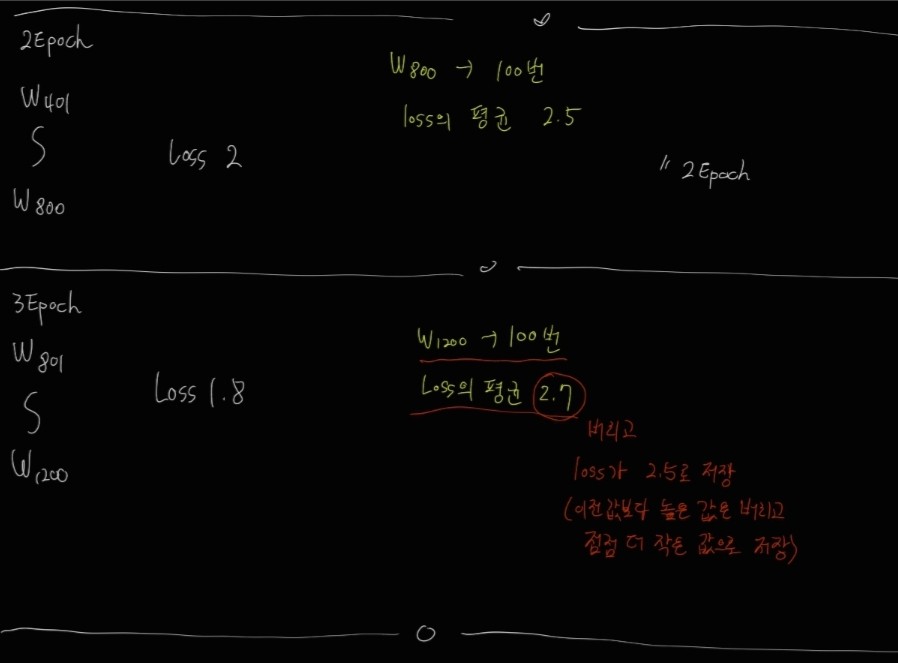 2Epoch
W401
S
W800
Loss 2
W800 → 100번
loss의 평균 2.5
" 2Epoch
3Epoch
W801
S
W1200
Loss 1.8
W1200 → 100번
Loss의 평균 2.7
버리고
loss가 2.5로 저장
(이전값보다 높은 값은 버리고
점점 더 작은 값으로 저장)